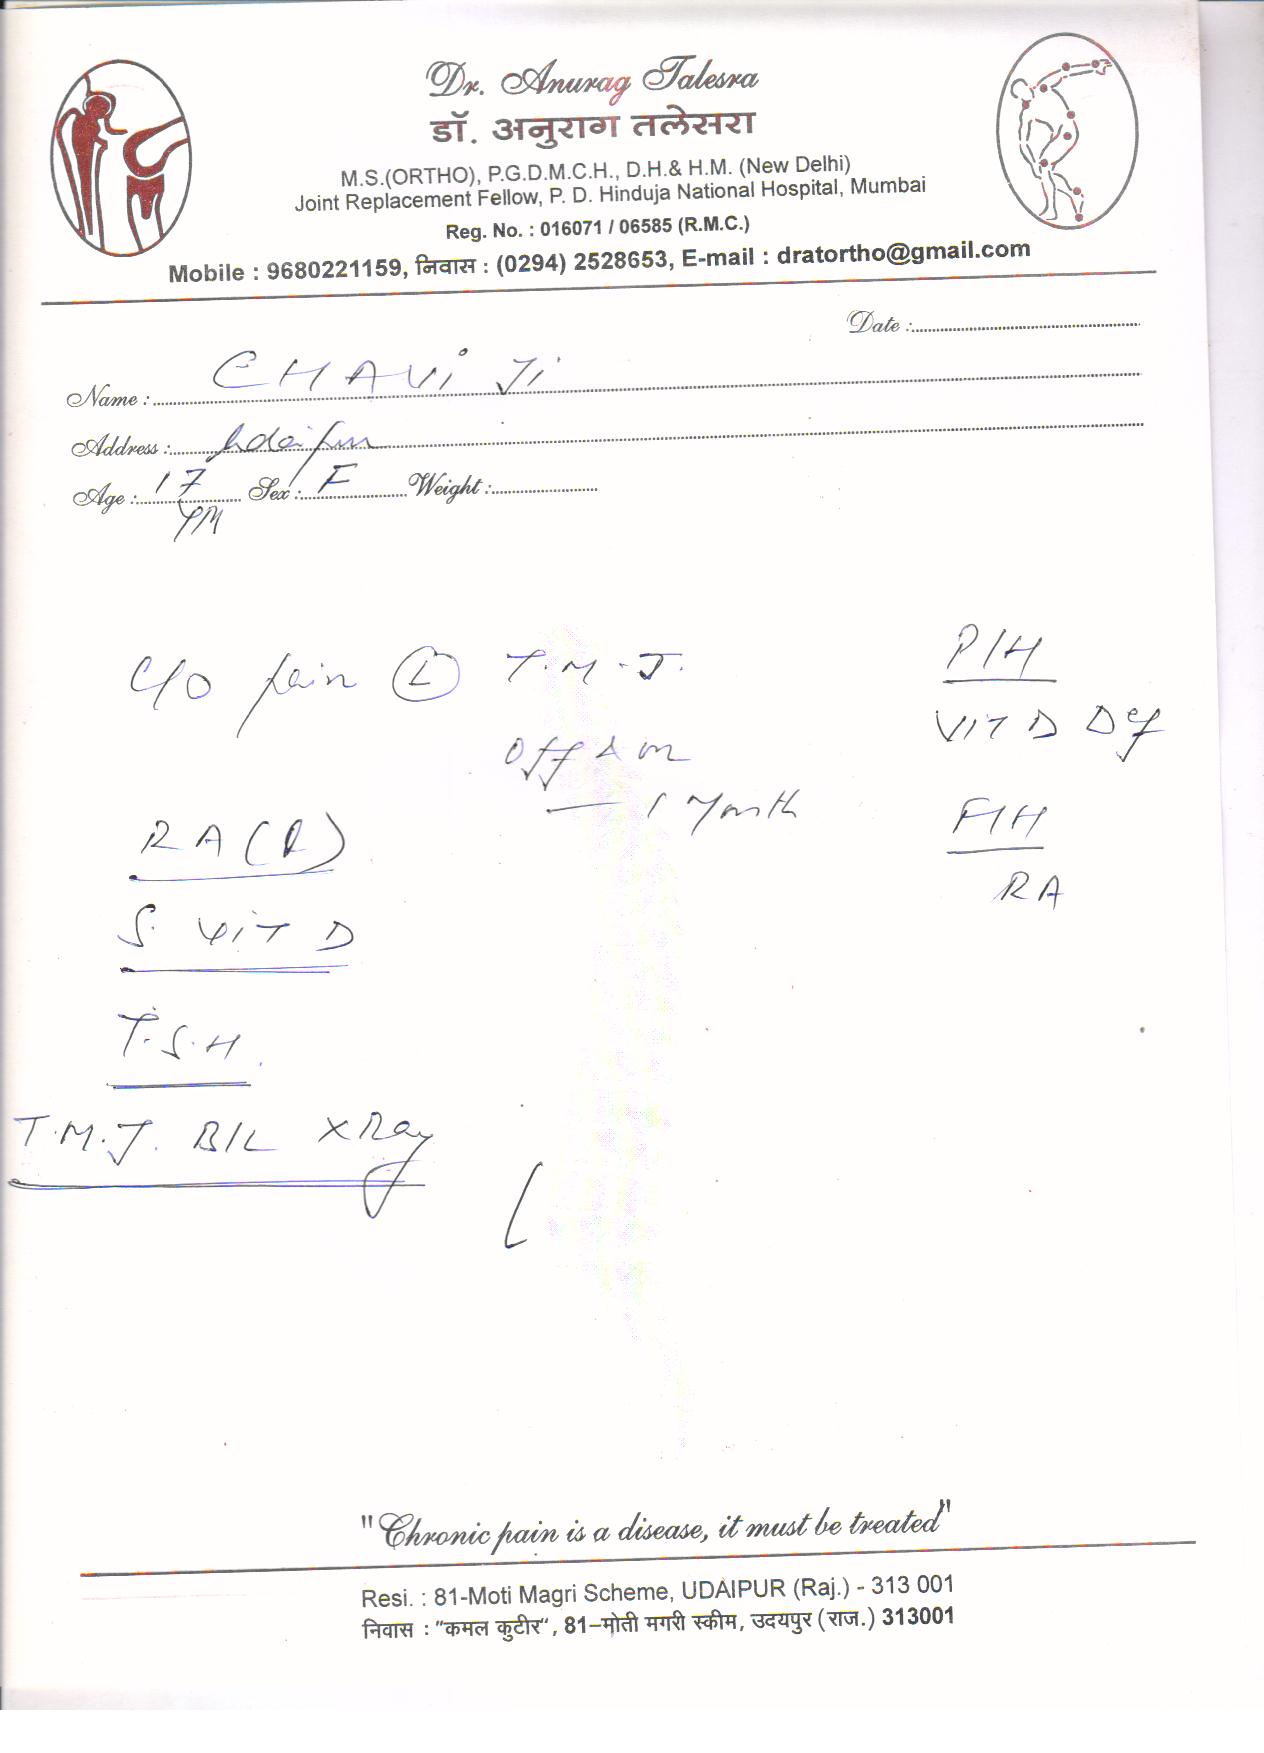 Dr. Anurag Talesra
डॉ. अनुराग तलेसरा
M.S.(ORTHO), P.G.D.M.C.H., D.H.& H.M. (New Delhi)
Joint Replacement Fellow, P. D. Hinduja National Hospital, Mumbai
Reg. No. : 016071 / 06585 (R.M.C.)
Mobile : 9680221159, निवास : (0294) 2528653, E-mail : dratortho@gmail.com
Date :
Name : CHAVi Ji
Address : Udaipur
Age : 17 Sex : F Weight :
C/O pain (L) T.M.J. P/H
off & on VIT D Def
1 Month F/H
RA
RA
S. VIT D
T.S.H
T.M.J. B/L X Ray
"Chronic pain is a disease, it must be treated"
Resi. : 81-Moti Magri Scheme, UDAIPUR (Raj.) - 313 001
निवास : "कमल कुटीर", 81–मोती मगरी स्कीम, उदयपुर (राज.) 313001